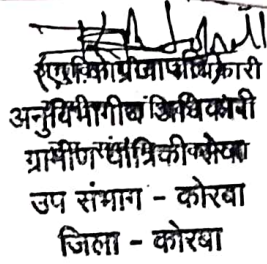 अनुविभागीय अधिकारी
ग्रामीण यांत्रिकी सेवा
उप संभाग - कोरबा
जिला - कोरबा